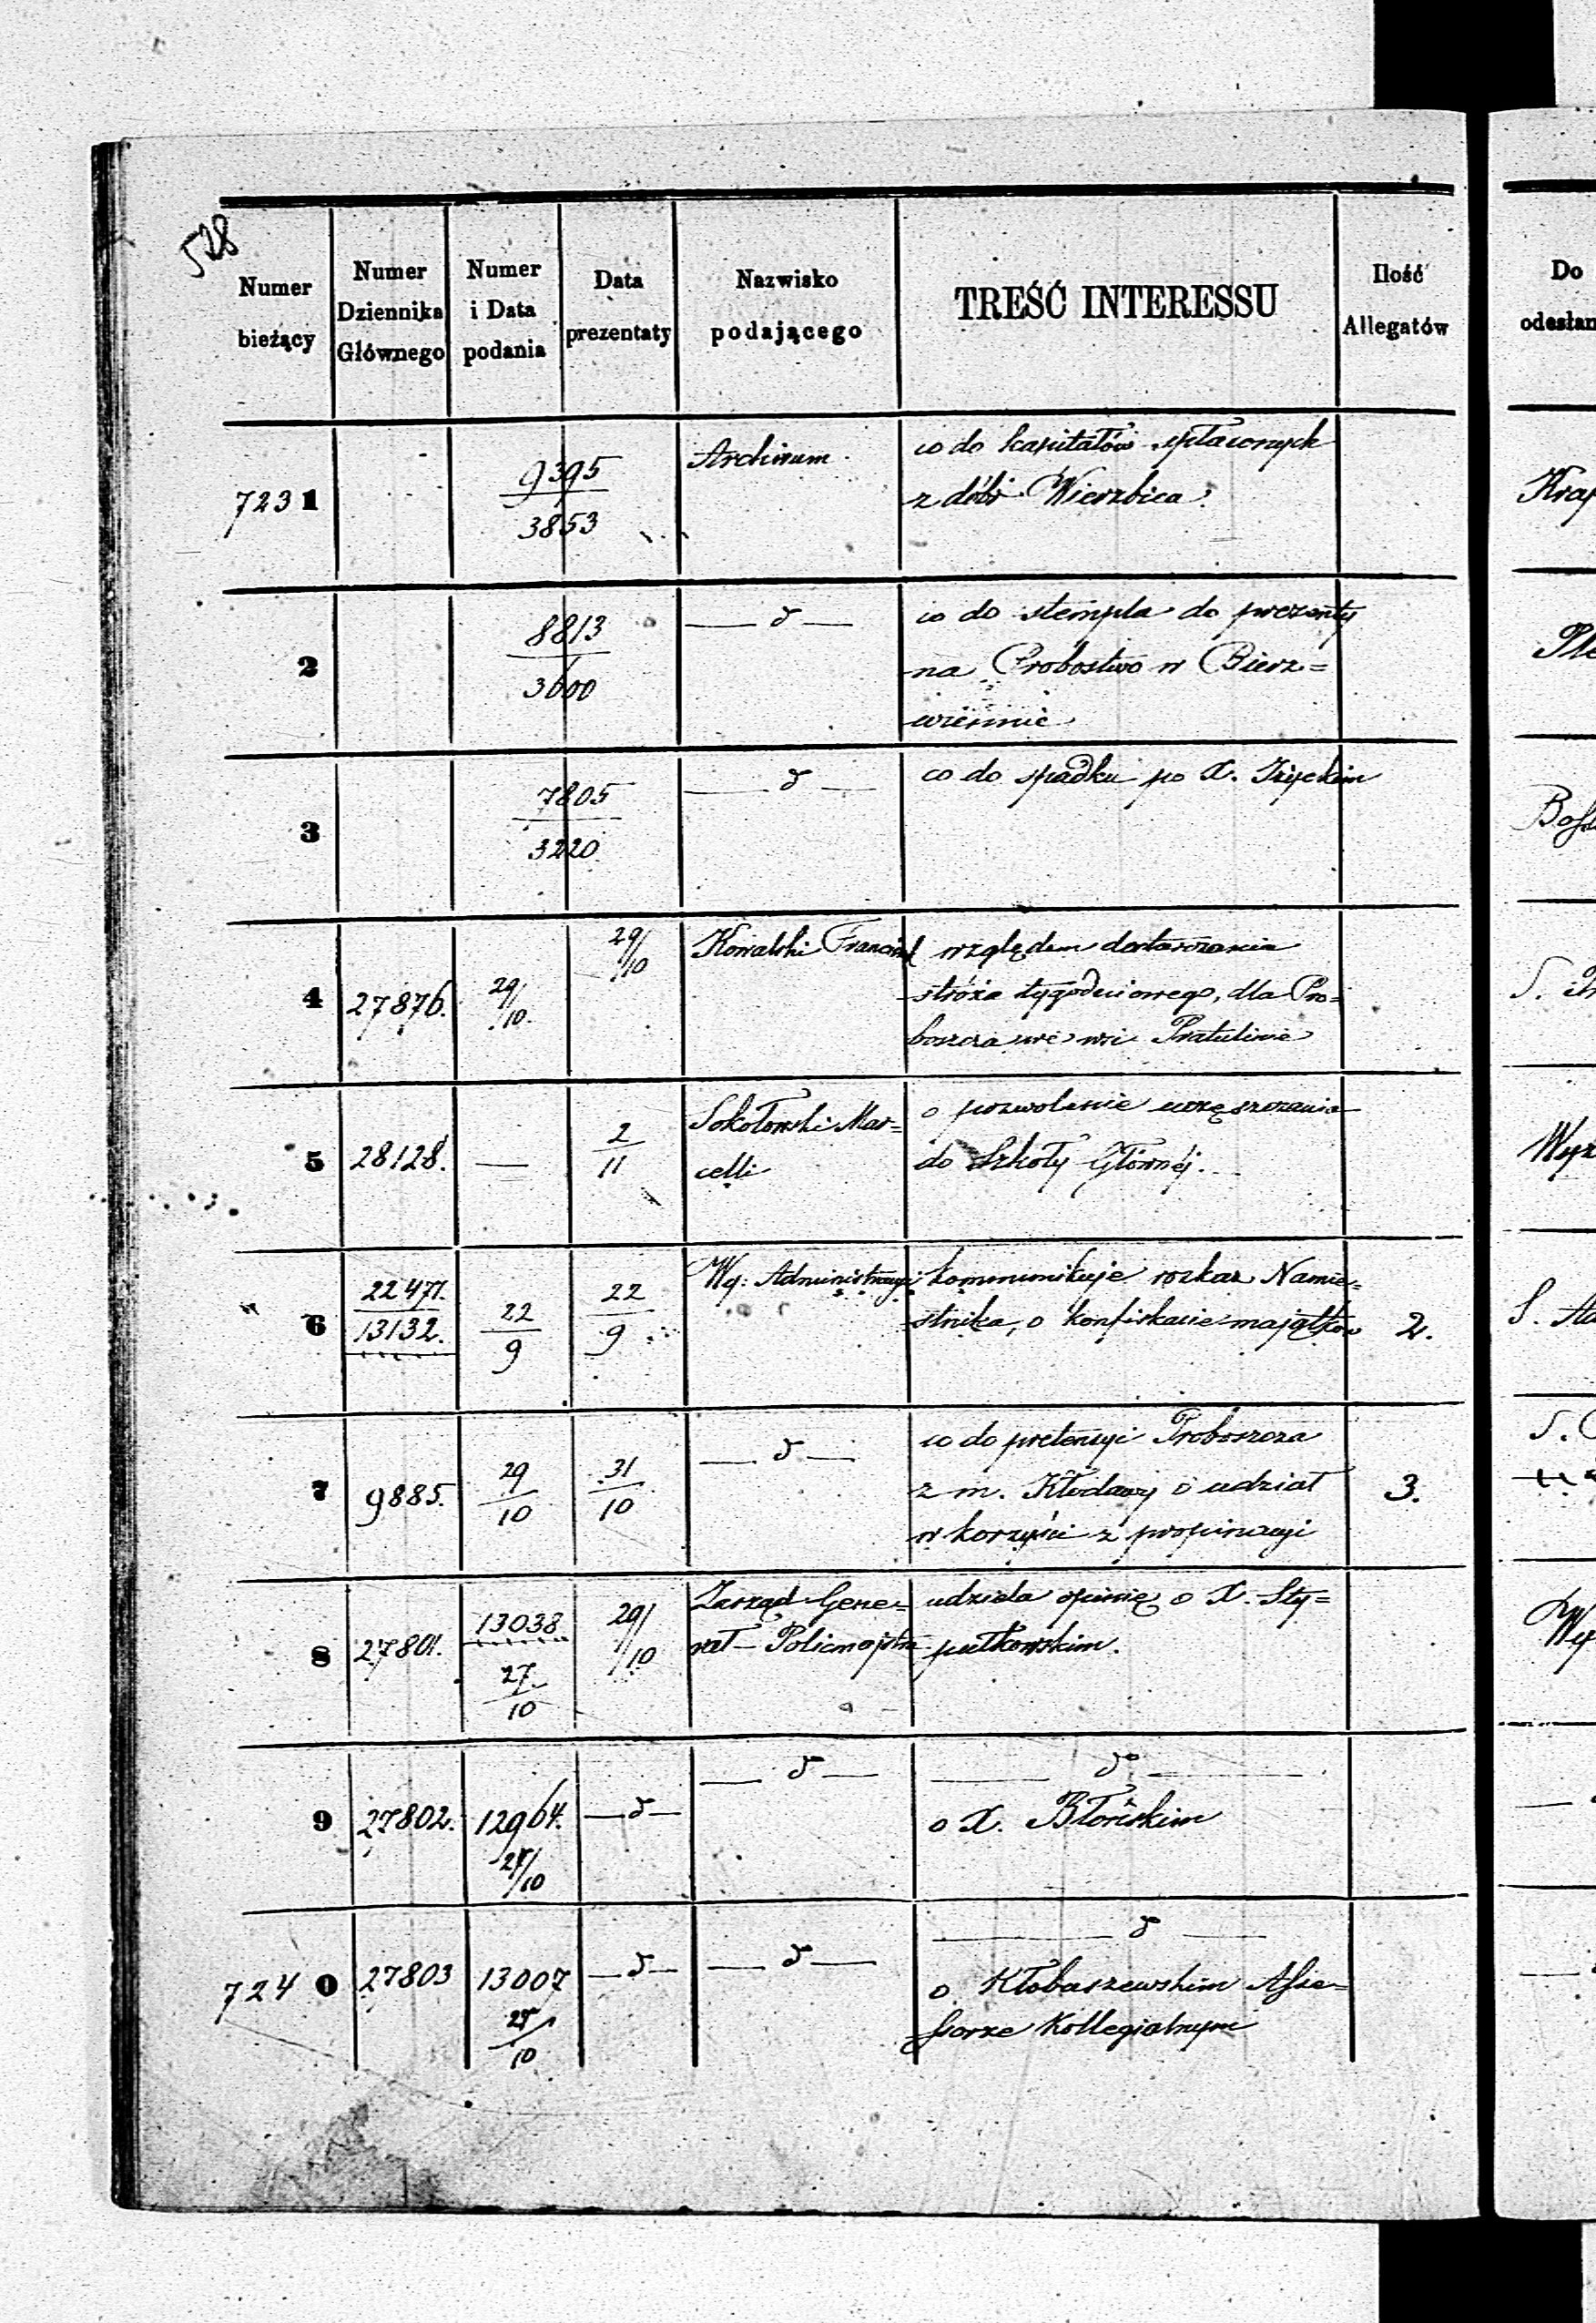 528
Numer bieżący
Numer Dziennika Głównego
Numer i Data podania
Data prezentaty
Nazwisko podającego
TREŚĆ INTERESSU
Ilość Allegatów
Do odesłan
7231
9395
3853
Archiwum
co do kapitałów spłaconych
z dóbr Wierzbica.
2
8813
3600
— d —
co do stempla do prezenty
na Probostwo w Bierz=
wiennie
3
7805
3220
— d —
co do spadku po X.
4
27876.
29/10.
29/10
Kowalski Franciszek
względem dostarczania
stróża tygodniowego, dla Pro=
boszcza we wsi Pratulinie
5
28128.
—
2/11
Sokołowski Mar=
celli
o pozwolenie uczęszczania
do Szkoły Głównéj.
6
22471.
13132.
22/9
22/9
Wy: Administracyi
kommunikuje rozkaz Namie=
stnika, o konfiskacie majątków
2.
7
9885.
29/10
31/10
— d —
co do pretensyi Proboszcza
z m. Kłodawy o udział
w korzyści z propinacyi
3.
8
27801.
13038
27/10
29/10
Zarząd Gene=
rał-Policmajstra
udziela opinię o X. Sty=
pułkowskim.
9
27802.
12964.
27/10
— d —
— d —
— do —
o X. Błońskim
7240
27803
13007
28/10
— d —
— d —
— d —
o Kłobaszewskim Asse=
ssorze Kollegialnym